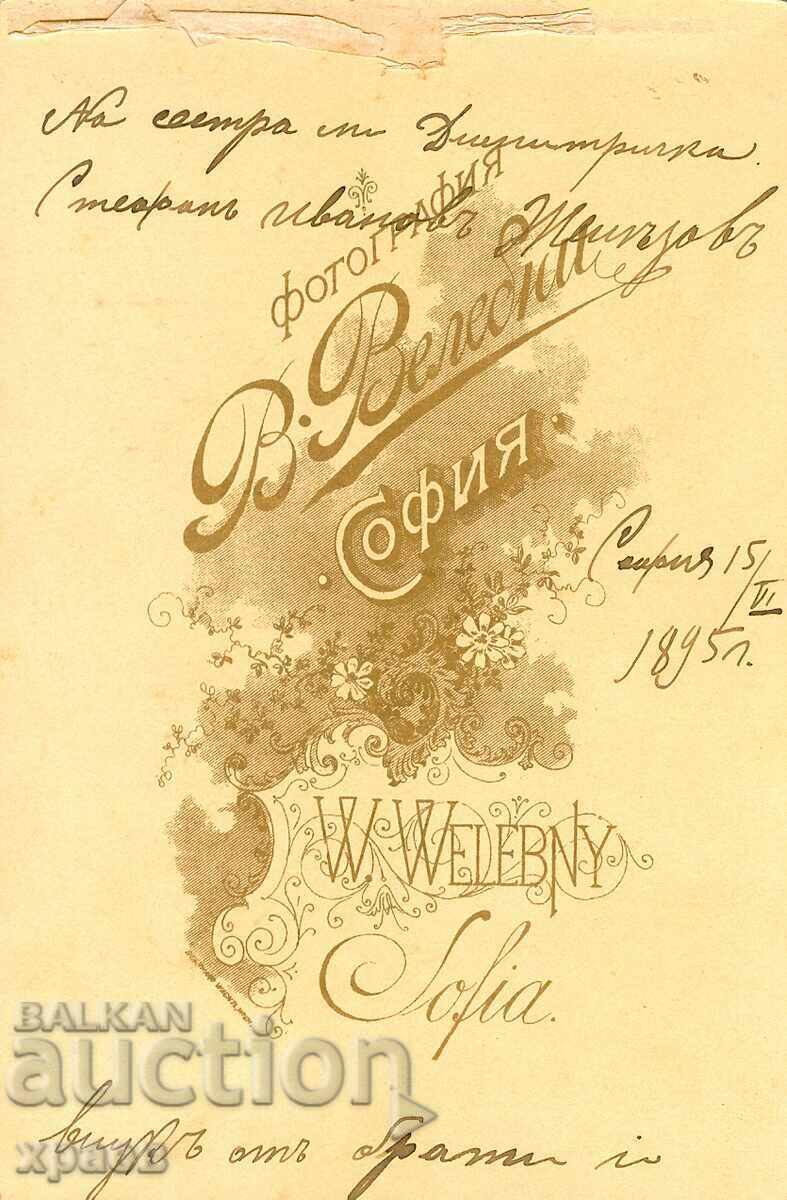 На сестра ми Димитричка.
Стефанъ Ивановъ
фотография
В. Велебни
София
София 15/VI
1895 г.
W. WELEBNY
Sofia.
BALKAN
auction
храбв
отъ брати